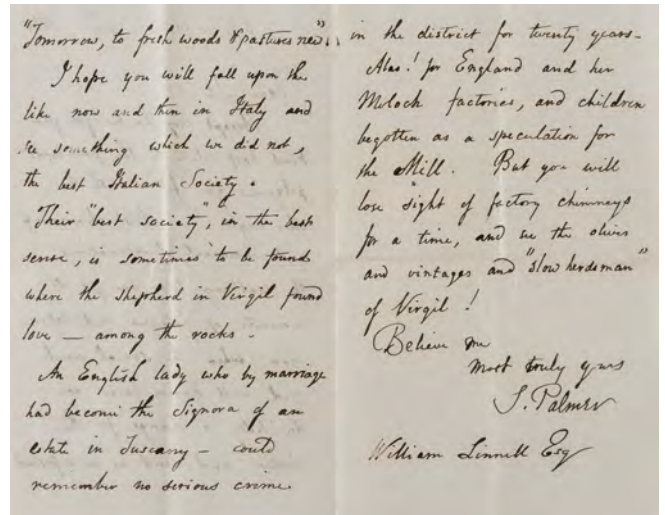 "Tomorrow, to fresh woods & pastures new".
I hope you will fall upon the
like now and then in Italy and
see something which we did not,
the best Italian Society.
Their "best society", in the best
sense, is sometimes to be found
where the shepherd in Virgil found
love — among the rocks.
An English lady who by marriage
had become the Signora of an
estate in Tuscany — could
remember no serious crime
in the district for twenty years —
Alas! for England and her
Moloch factories, and children
begotten as a speculation for
the Mill. But you will
lose sight of factory chimneys
for a time, and see the olives
and vintages and "slow herdsman"
of Virgil!
Believe me
most truly yours
S. Palmer
William Linnell Esq